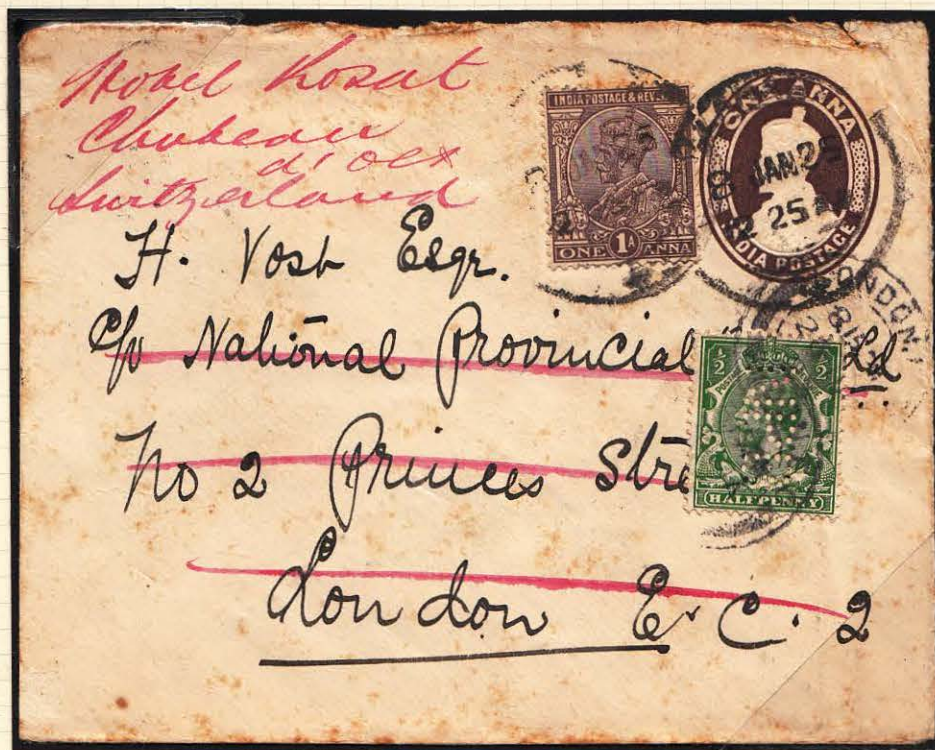 Hotel Rosat
Chateau
d'oex
Switzerland
INDIA POSTAGE & REVE
ONE 1A ANNA
ONE ANNA
INDIA POSTAGE
JAN 25
25
LONDON
H. Vost Esqr.
C/o National Provincial Ld
No 2 Princes Stre
London E.C. 2
½ ½
HALFPENNY